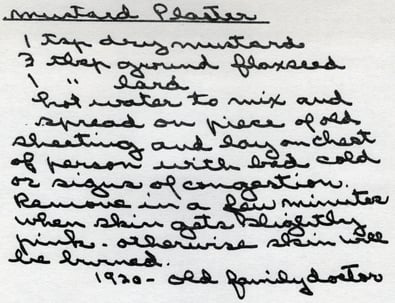 mustard Plaster
1 tsp dry mustard
3 tbsp ground flaxseed
1 " lard
hot water to mix and
spread on piece of old
sheeting and lay on chest
of person with bad cold
or signs of congestion.
Remove in a few minutes
when skin gets slightly
pink - otherwise skin will
be burned.
1920 - old family doctor